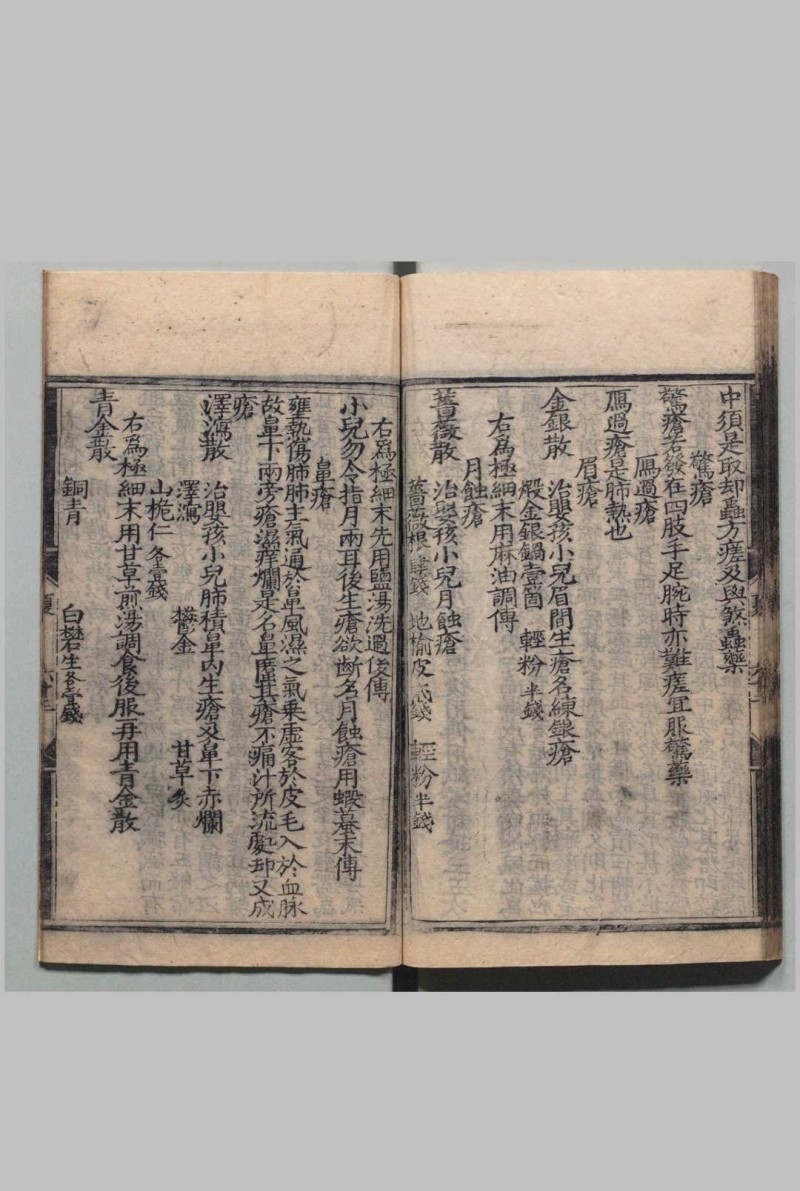 中須是取却蟲方瘥及與煞蟲藥
驚瘡
驚瘡若發在四肢手足腕時亦難瘥宜服驚藥
鴈過瘡
鴈過瘡是肺熱也
眉瘡
金銀散 治嬰孩小兒眉間生瘡名練銀瘡
煅金銀鍋壹箇 輕粉半錢
右爲極細末用麻油調傅
月蝕瘡
薔薇散 治嬰孩小兒月蝕瘡
薔薇根 錢 地榆皮 錢 輕粉半錢
右爲極細末先用鹽湯洗過後傅
小兒勿令指月兩耳後生瘡欲斷名月蝕瘡用蝦蟇末傅
鼻瘡
壅熱傷肺肺主氣通於鼻風濕之氣乗虛客於皮毛入於血脉
故鼻下兩旁瘡濕痒爛是名鼻䘌其瘡不痛汁所流處却又成
瘡
澤瀉散 治嬰孩小兒肺積鼻內生瘡及鼻下赤爛
澤瀉 欝金 甘草炙
山梔仁各壹錢
右爲極細末用甘草煎湯調食後服再用青金散
青金散
銅青 白礬生各壹錢